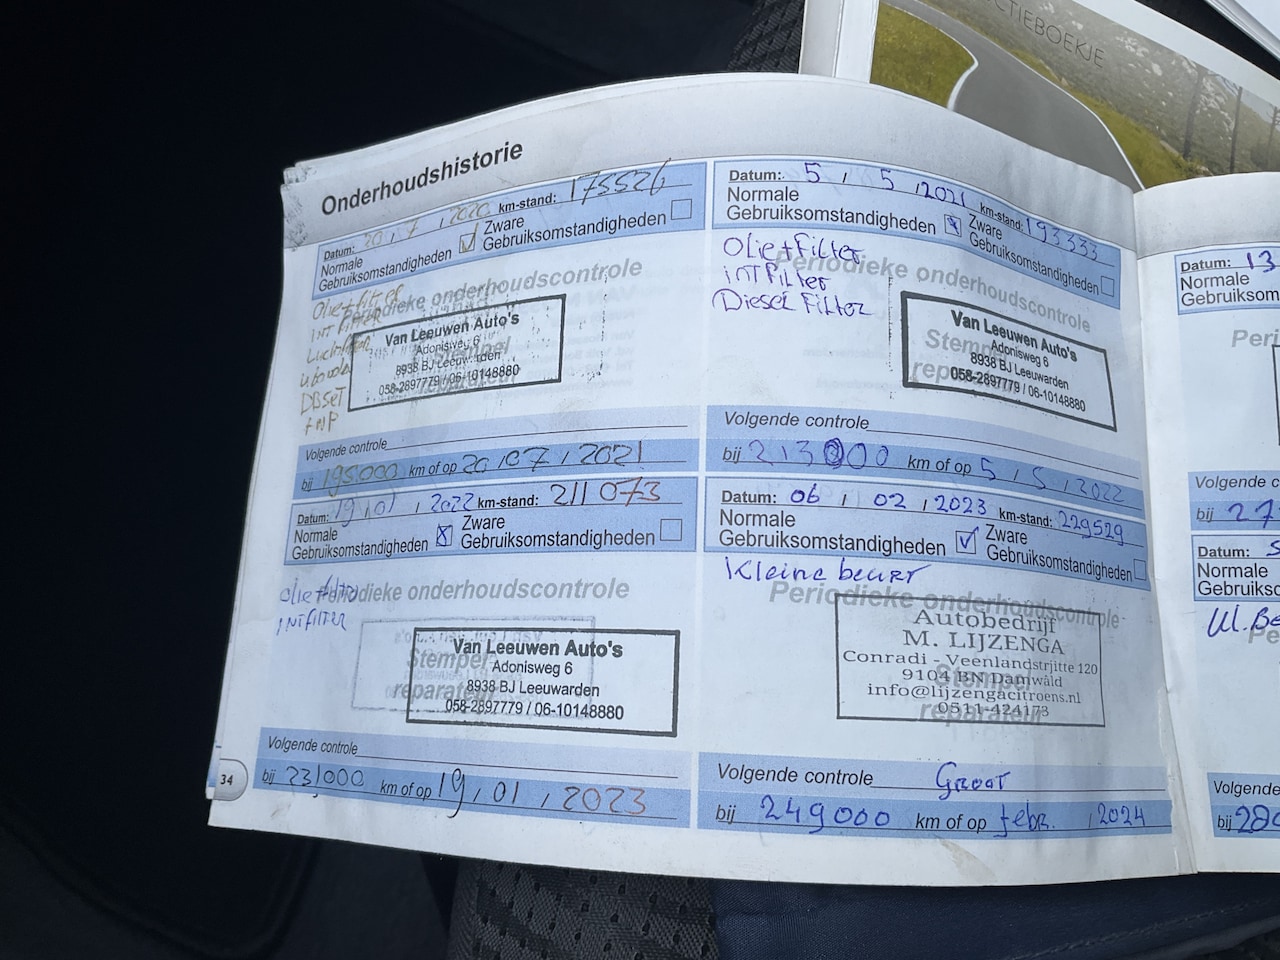 CTIEBOEKJE
Onderhoudshistorie
Datum: 20 / 7 / 2020 km-stand: 175526
Normale
Gebruiksomstandigheden
Zware
Gebruiksomstandigheden
Periodieke onderhoudscontrole
Olie+filter
INT FILTER
DBSET
Stempel
reparateur
Van Leeuwen Auto's
Adonisweg 6
8938 BJ Leeuwarden
058-2897779 / 06-10148880
Volgende controle
bij 195000 km of op 20 / 07 / 2021
Datum: 5 / 5 / 2021 km-stand: 193333
Normale
Gebruiksomstandigheden
Zware
Gebruiksomstandigheden
Olie+Filter
Periodieke onderhoudscontrole
INTFilter
Diesel Filter
Stempel
reparateur
Van Leeuwen Auto's
Adonisweg 6
8938 BJ Leeuwarden
058-2897779 / 06-10148880
Volgende controle
bij 213000 km of op 5 / 5 / 2022
Datum: 19 / 01 / 2022 km-stand: 211073
Normale
Gebruiksomstandigheden
Zware
Gebruiksomstandigheden
Periodieke onderhoudscontrole
INTFILTER
Stempel
reparateur
Van Leeuwen Auto's
Adonisweg 6
8938 BJ Leeuwarden
058-2897779 / 06-10148880
Volgende controle
bij 231000 km of op 19 / 01 / 2023
34
Datum: 06 / 02 / 2023 km-stand: 229529
Normale
Gebruiksomstandigheden
Zware
Gebruiksomstandigheden
Kleine beurt
Periodieke onderhoudscontrole
Stempel
reparateur
Autobedrijf
M. LIJZENGA
Conradi - Veenlandstrjitte 120
9104 BN Damwâld
info@lijzengacitroens.nl
0511-424173
Volgende controle Groot
bij 249000 km of op febr. / 2024
Datum: 13
Normale
Gebruiksom
Peri
Volgende c
bij 27
Datum:
Normale
Gebruiksc
Pe
Volgende
bij 280